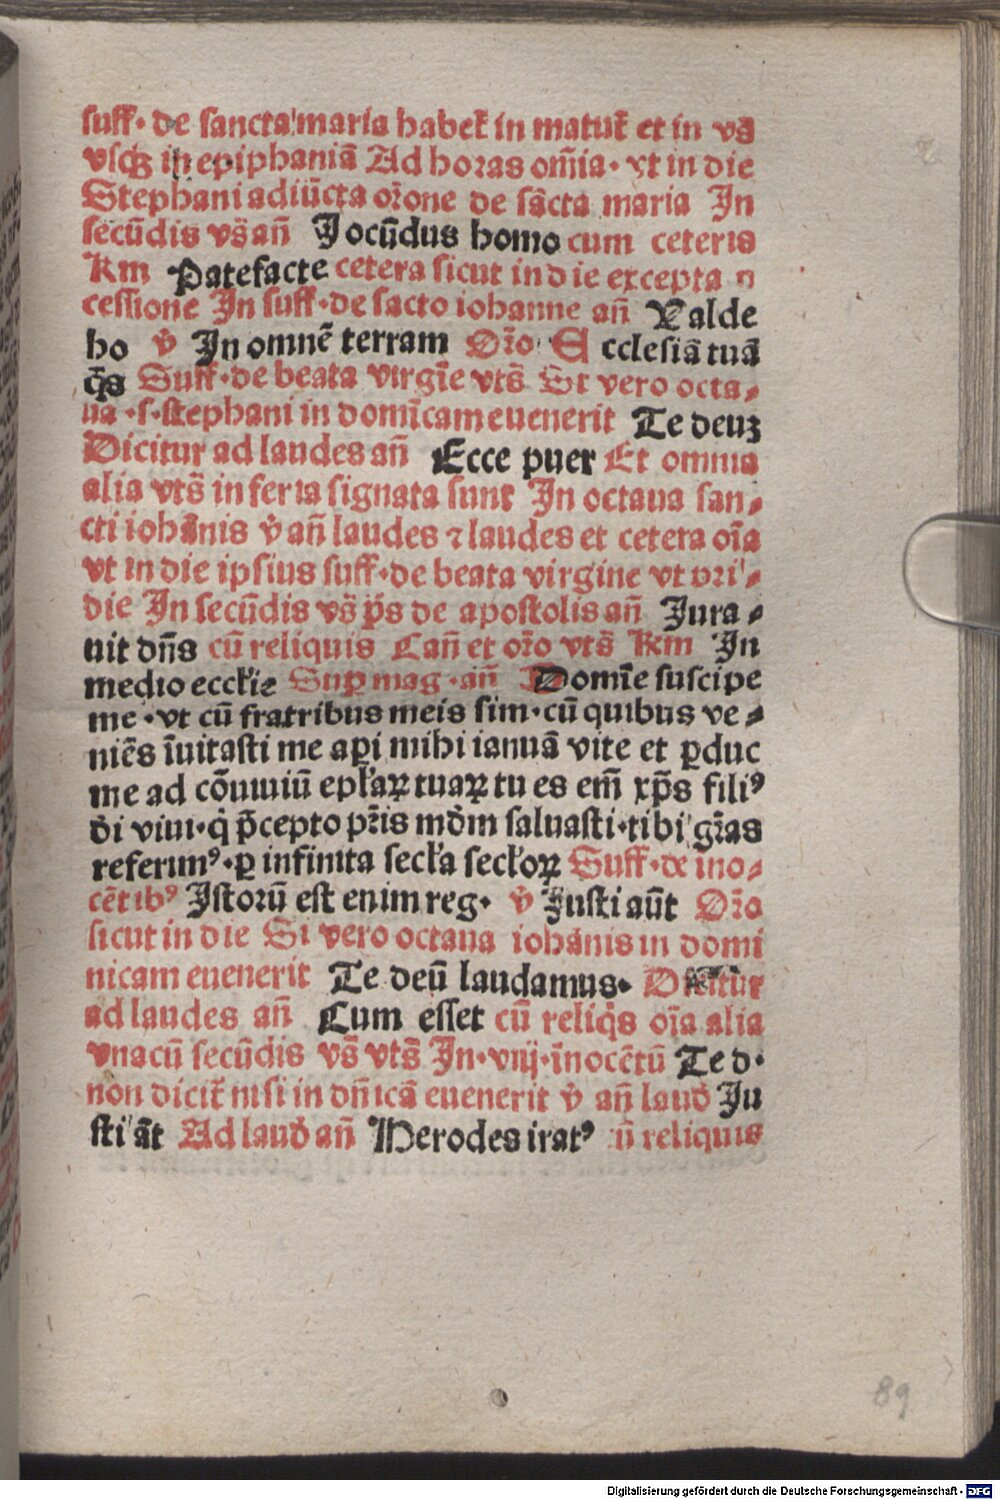 suff· de sancta maria habet᷑ in matut᷑ et in vs̄
vsqꝫ in epiphaniā Ad horas om̄ia· vt in die
Stephani adiūcta or̄one de sācta maria In
secūdis vs̄ añ Jocūdus homo cum ceteris
km Patefacte cetera sicut in die excepta
cessione In suff·de sācto iohanne añ Valde
ho v̄ In omnē terram Or̄o Ecclesiā tuā
q̄s Suff·de beata virgīe vts̄ Si vero octa⸗
ua ·s·stephani in domīcam euenerit Te deuꝫ
Dicitur ad laudes añ Ecce puer Et omnia
alia vts̄ in feria signata sunt In octaua san⸗
cti iohānis v̄ añ laudes ⁊ laudes et cetera oīa
vt in die ipsius suff·de beata virgine vt pri⸗
die In secūdis vs̄ p̄s de apostolis añ Jura⸗
uit dn̄s cū reliquis Cañ et or̄o vts̄ km In
medio eccłie Suꝑ mag·añ Domīe suscipe
me·vt cū fratribus meis sim·cū quibus ve⸗
niēs īuitasti me aꝑi mihi ianuā vite et ꝑduc
me ad cōuiuiū epłaꝝ tuaꝝ tu es em̄ xp̄s filiꝰ
d̄i viui·q̄ p̄cepto pr̄is md̄m saluasti·tibi gr̄as
referimꝰ·ꝑ infinita secła secłoꝝ Suff·de ino⸗
cētibꝰ Istorū est enim reg· v̄ Justi aūt Or̄o
sicut in die Si vero octaua iohānis in domi
nicam euenerit Te deū laudamus· Dicitur
ad laudes añ Cum esset cū reliq̄s oīa alia
vnacū secūdis vs̄ vts̄ In·viij·īnocētū Te d·
non dicit᷑ nisi in dn̄icā euenerit v̄ añ laud̄ Ju
sti āt Ad laud̄ añ Herodes iratꝰ cū reliquis
89
Digitalisierung gefördert durch die Deutsche Forschungsgemeinschaft - DFG